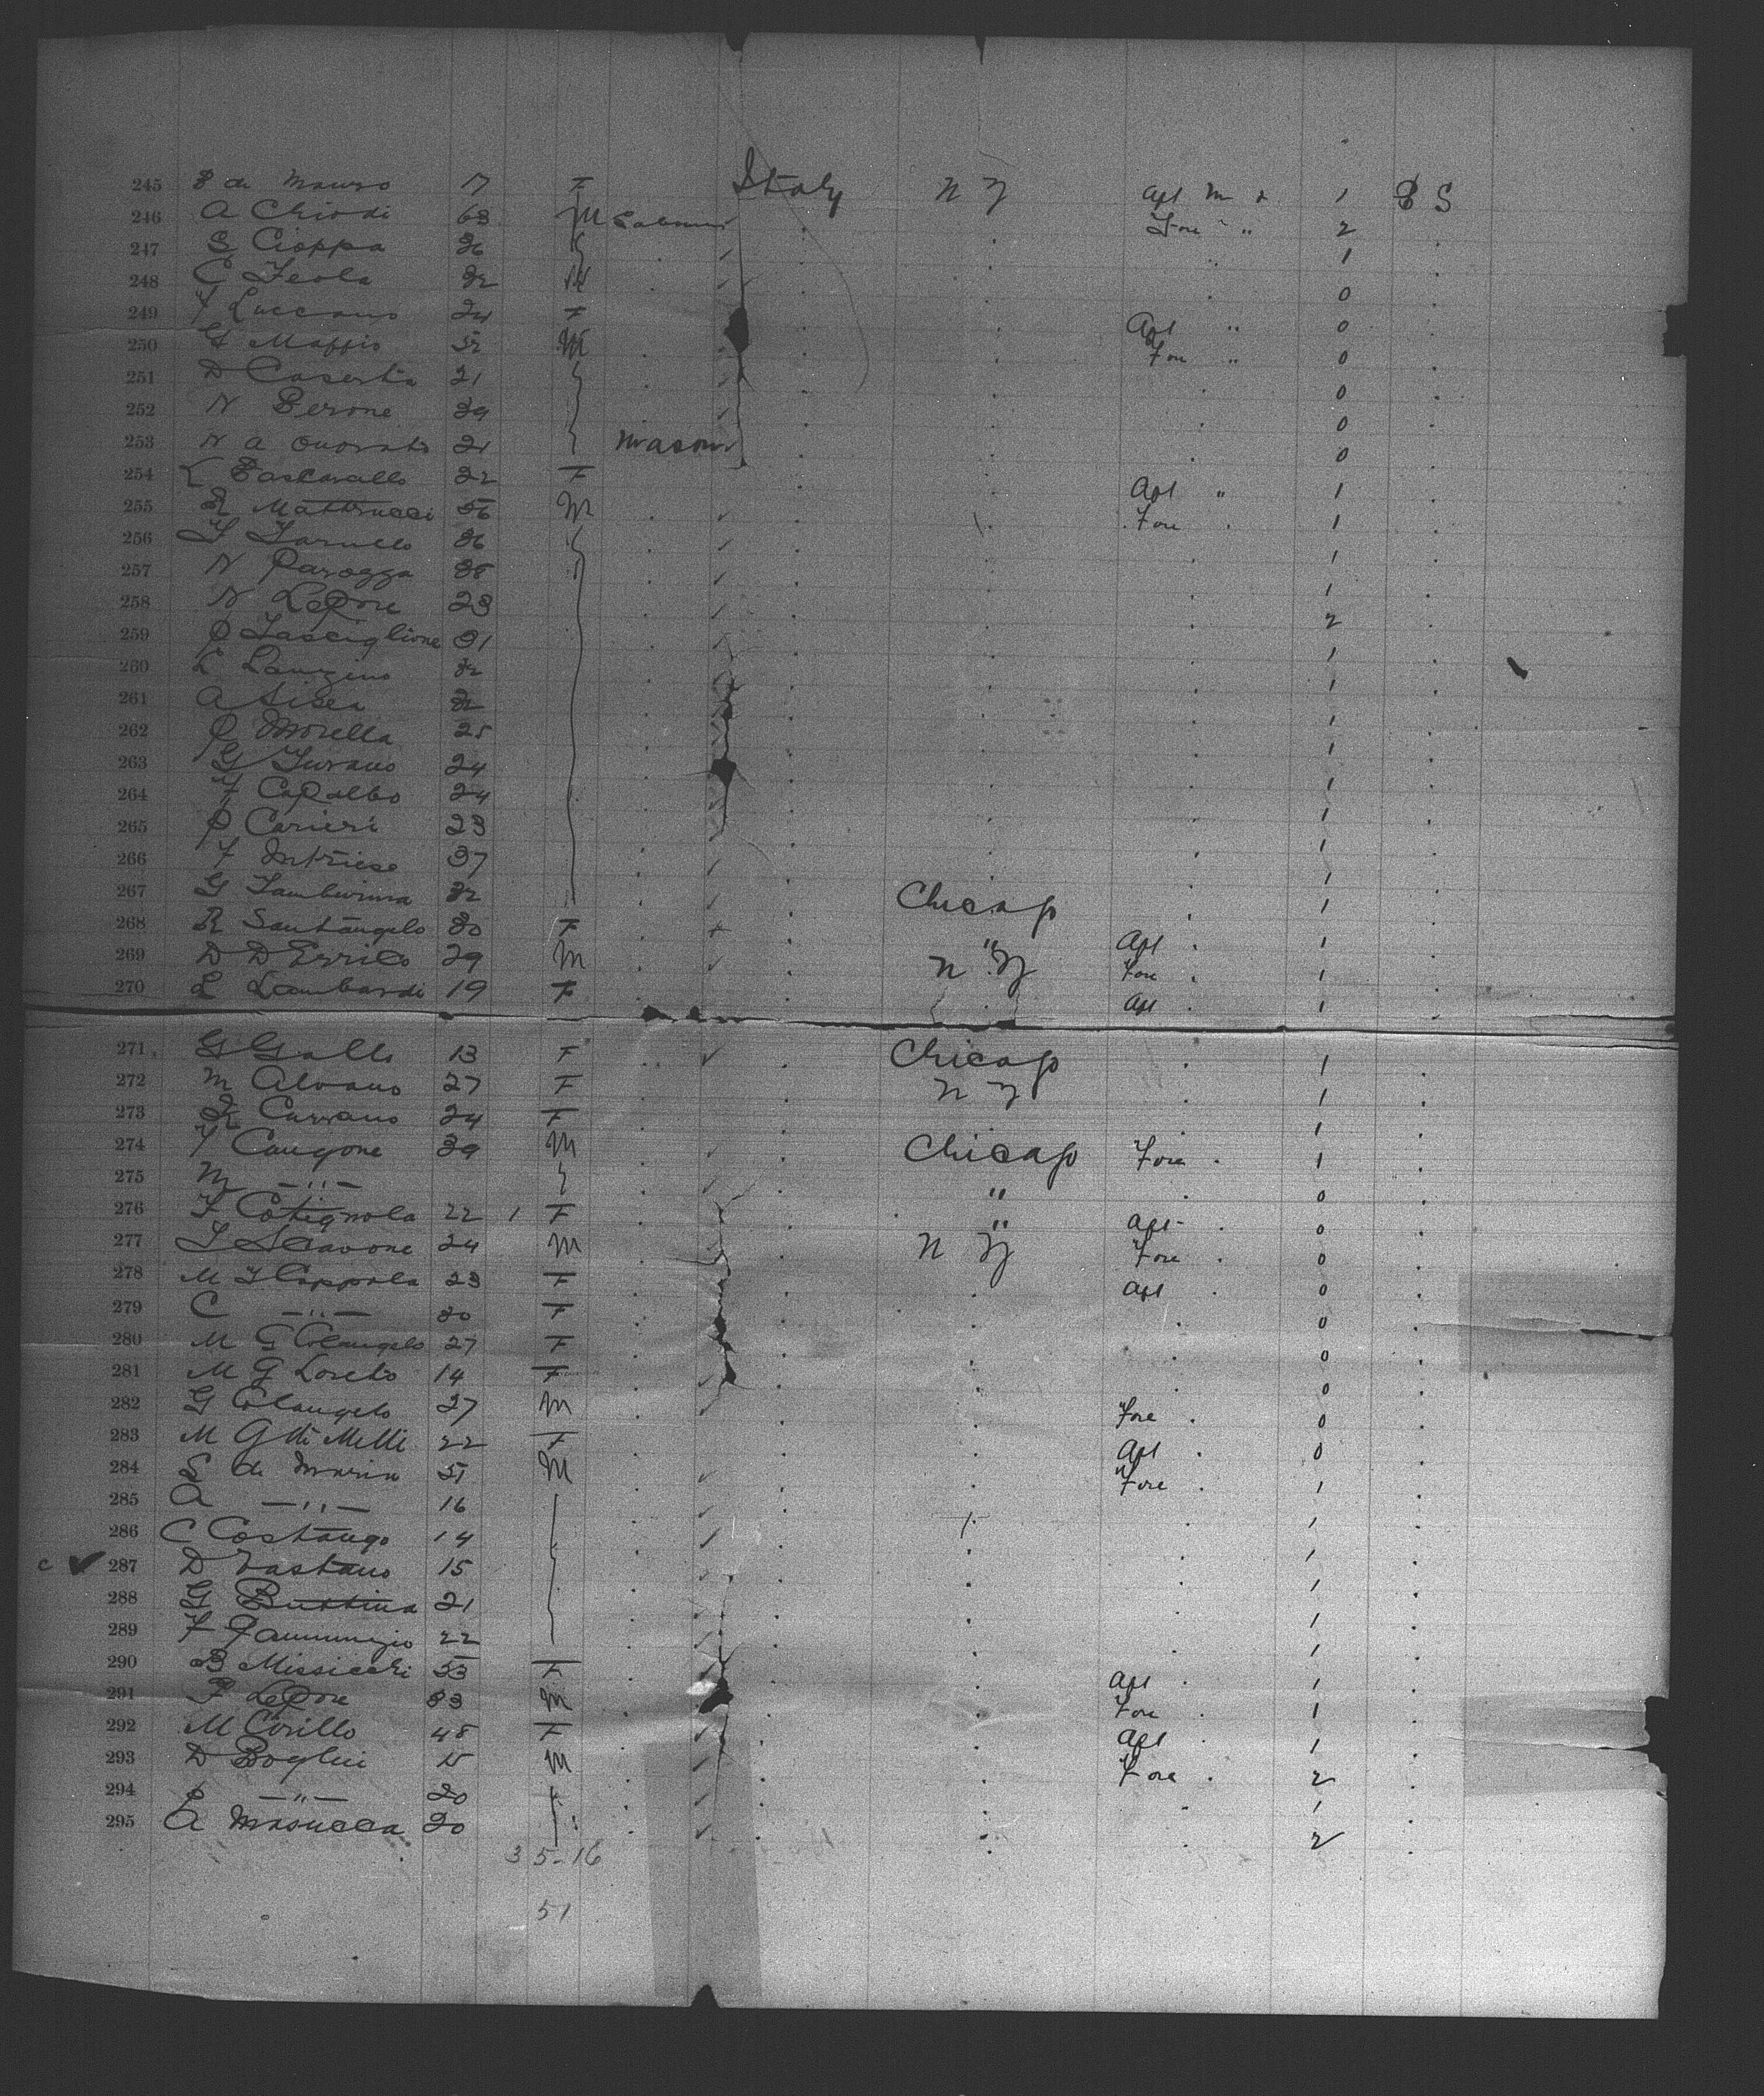 245 de Mauro 17 F Italy N Y Aft M 1 P S
246 A Chiodi 63 M Labour Fore " 2
247 S Cioppa 36 1
248 C Feola 32 M 0
249 F Luccano 24 F Aft " 0
250 G Maffio 32 M Fore " 0
251 D Caserta 21 0
252 N Perone 39 0
253 N A Onorato 21 Mason 0
254 Pascarallo 22 F Aft " 1
255 R Mattrucci 56 M Fore 1
256 F Iarullo 36 1
257 N Parozza 38 1
258 N LePore 23 2
259 P Tasciglione 31 1
260 L Lanzino 32 1
261 A Sisea 32 1
262 P Morella 25 1
263 G Turano 24 1
264 F CaPalbo 24 1
265 P Carieri 23 1
266 F Intrieso 37 1
267 G Tamburina 32 Chicago 1
268 R Santangelo 30 F " Aft 1
269 D D'Errico 29 M N Y Fore 1
270 L Lombardi 19 F Aft 1
271 G Gallo 13 F Chicago 1
272 M Alvano 27 F N Y 1
273 R Currano 24 F 1
274 F Cangone 39 M Chicago Fore 1
275 M — " — " 0
276 F Cotignola 22 1 F " Aft 0
277 S Scavone 24 M N Y Fore 0
278 M F Coppola 23 F Aft 0
279 C — " — 30 F 0
280 M G Colangelo 27 F 0
281 M G Loreto 14 F 0
282 G Colangelo 27 M Fore 0
283 M G di Melli 22 F Aft 0
284 S de Maria 51 M Fore 1
285 A — " — 16 1
286 C Costango 14 1
c ✓ 287 D Vastano 15 1
288 G Buttina 21 1
289 F Iammunzio 22 1
290 B Missiceli 53 F Aft 1
291 P LePore 33 M Fore 1
292 M Cirillo 48 F Aft 1
293 D Boglui 15 M Fore 2
294 — " — 20 1
295 A Masucca 20 2
35-16
51